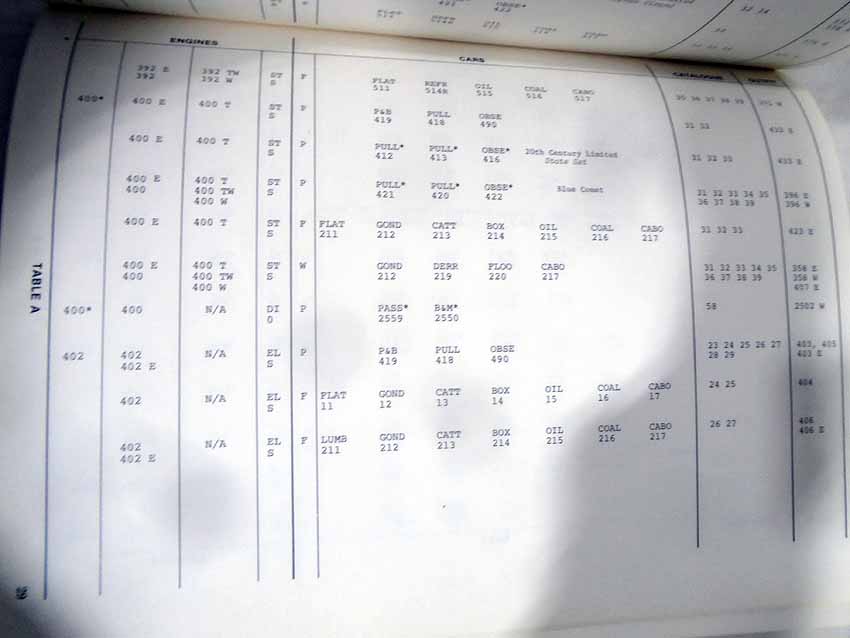 ENGINES CARS CATALOGUE
392 E 392 TW ST F FLAT REFR OIL COAL CABO
392 392 W S 511 514R 515 516 517
400* 400 E 400 T ST P P&B PULL OBSE 35 36 37 38 39
S 419 418 490 31 33 433 E
400 E 400 T ST P PULL* PULL* OBSE* 20th Century Limited
S 412 413 416 State Set 31 32 33 433 E
400 E 400 T ST P PULL* PULL* OBSE* Blue Comet 31 32 33 34 35 396 E
400 400 TW S 421 420 422 36 37 38 39 396 W
400 W
400 E 400 T ST F FLAT GOND CATT BOX OIL COAL CABO 31 32 33 423 E
S 211 212 213 214 215 216 217
400 E 400 T ST W GOND DERR FLOO CABO 31 32 33 34 35 358 E
400 400 TW S 212 219 220 217 36 37 38 39 358 W
400 W 457 E
400* 400 N/A DI P PASS* B&M* 58 2502 W
O 2559 2550
402 402 N/A EL P P&B PULL OBSE 23 24 25 26 27 403, 405
402 E S 419 418 490 28 29 403 E
402 N/A EL F FLAT GOND CATT BOX OIL COAL CABO 24 25 404
S 11 12 13 14 15 16 17
402 N/A EL F LUMB GOND CATT BOX OIL COAL CABO 26 27 406
402 E S 211 212 213 214 215 216 217 406 E
TABLE A